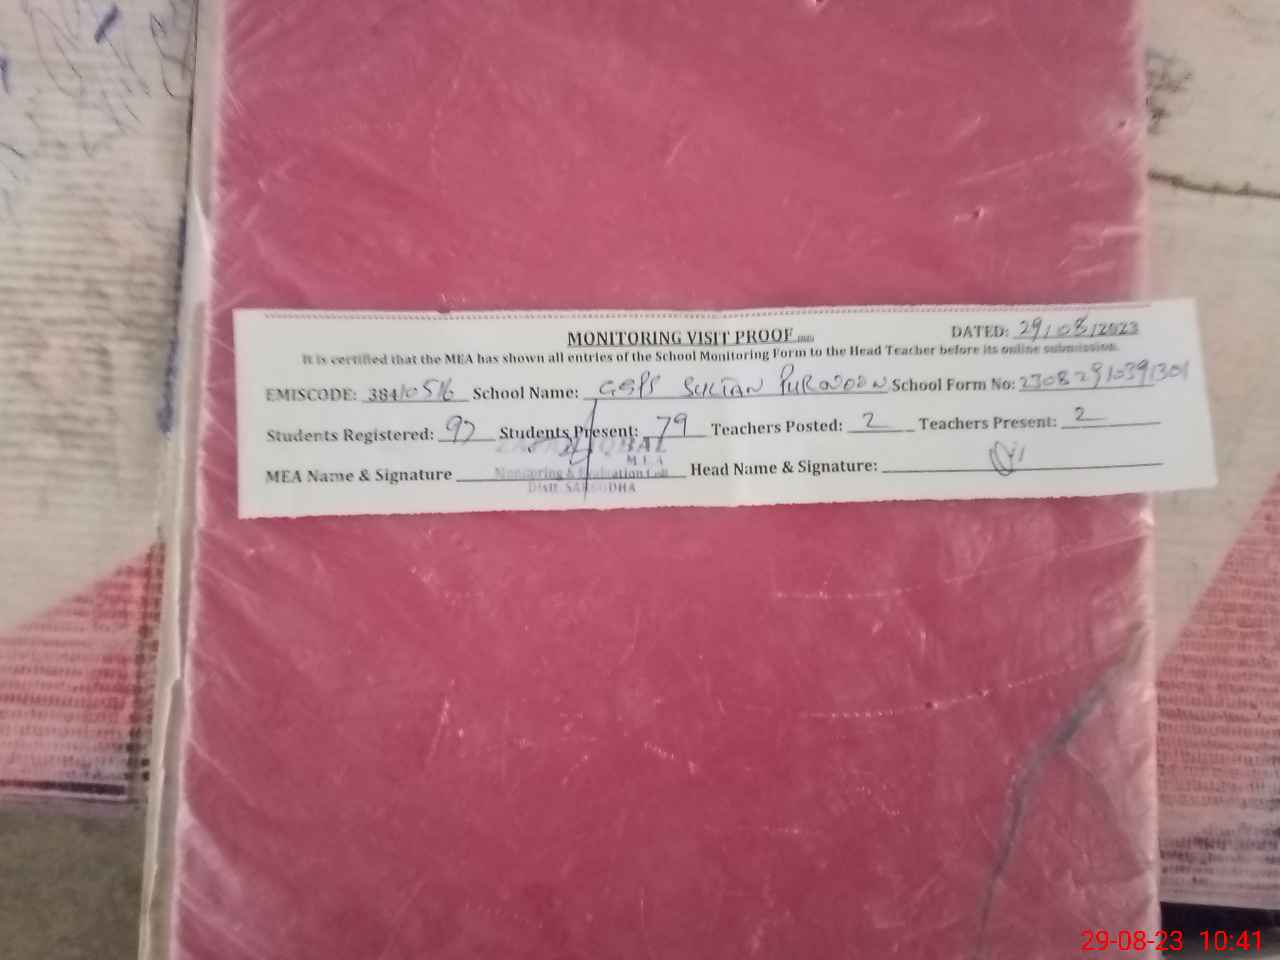 MONITORING VISIT PROOF
DATED: 29/08/2023
It is certified that the MEA has shown all entries of the School Monitoring Form to the Head Teacher before its online submission.
EMISCODE: 38410516 School Name: GGPS SULTAN PURNOON School Form No: 23082910391301
Students Registered: 97 Students Present: 79 Teachers Posted: 2 Teachers Present: 2
IQBAL
MEA
MEA Name & Signature Head Name & Signature:
Monitoring & Evaluation Cell
Distt. SARGODHA
29-08-23 10:41